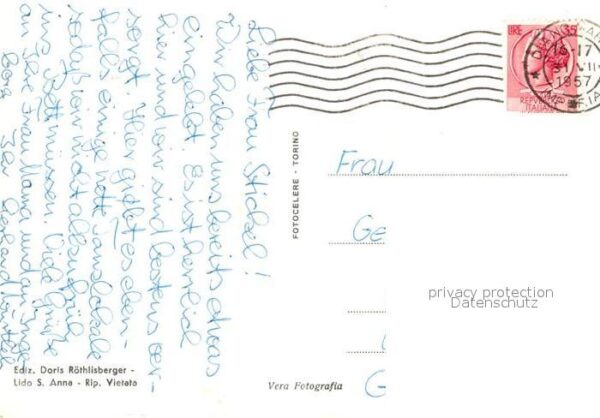 Liebe Frau Stickel!
Wir haben uns bereits etwas
eingelebt. Es ist herrlich
hier und wir sind bestens ver-
sorgt. Hier gibt es eben-
falls einige nette Tanzlokale
sodass wir nicht allzu früh
ins Bett müssen. Viele Grüße
an Ihre Frau Mama und
LIRE 35
REPVBBLICA
ITALIANA
15-17
1957
FOTOCELERE - TORINO
Frau
Ge
G
privacy protection
Datenschutz
Ediz. Doris Röthlisberger -
Lido S. Anna - Rip. Vietata
Vera Fotografia